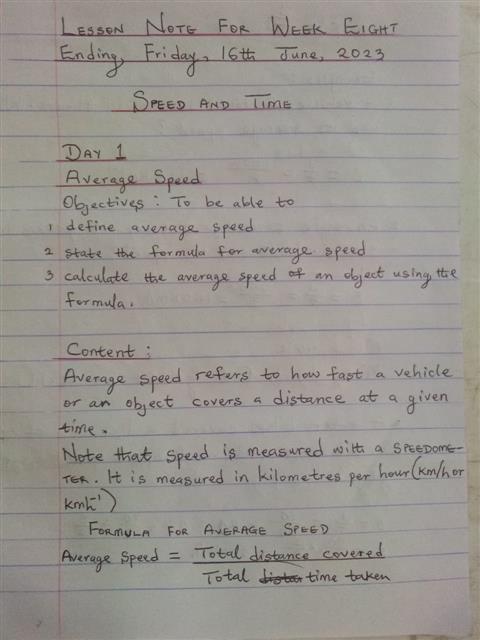 LESSON NOTE FOR WEEK EIGHT
Ending, Friday, 16th June, 2023
SPEED AND TIME
DAY 1
Average Speed
Objectives: To be able to
1 define average speed
2 state the formula for average speed
3 calculate the average speed of an object using the
formula.
Content:
Average speed refers to how fast a vehicle
or an object covers a distance at a given
time.
Note that speed is measured with a SPEEDOME-
TER. It is measured in kilometres per hour (km/h or
kmh⁻¹)
FORMULA FOR AVERAGE SPEED
Average Speed = Total distance covered
Total time taken